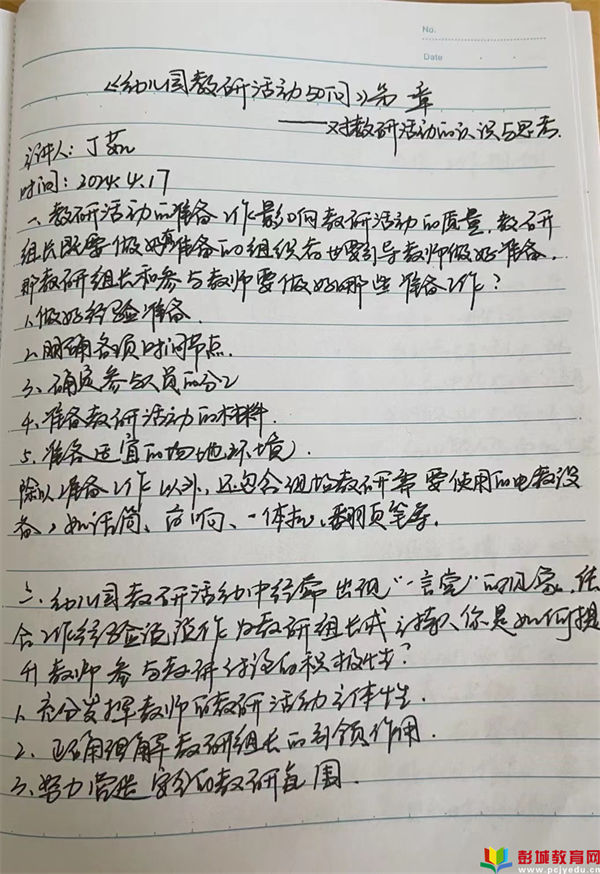 No.
Date
《幼儿园教研活动50问》第一章
——对教研活动的认识与思考.
主讲人:丁茹
时间:2024.4.17
一、教研活动的准备工作影响教研活动的质量,教研
组长既要做好准备的组织者也要引导教师做好准备.
那教研组长和参与教师要做好哪些准备工作?
1.做好经验准备.
2.明确各项时间节点.
3、确定参与人员的分工
4、准备教研活动的材料.
5、准备适宜的场地(环境)
除以准备工作以外,还包含组好教研需要使用的电教设
备,如话筒、音响、一体机、翻页笔等.
二、幼儿园教研活动中经常出现“一言堂”的现象,结
合工作经验说说作为教研组长或主持人你是如何提
升教师参与教研讨论的积极性?
1、充分发挥教师的教研活动主体性.
2、正确理解教研组长的引领作用.
3、努力营造安全的教研氛围.
彭城教育网
www.pcjyedu.cn